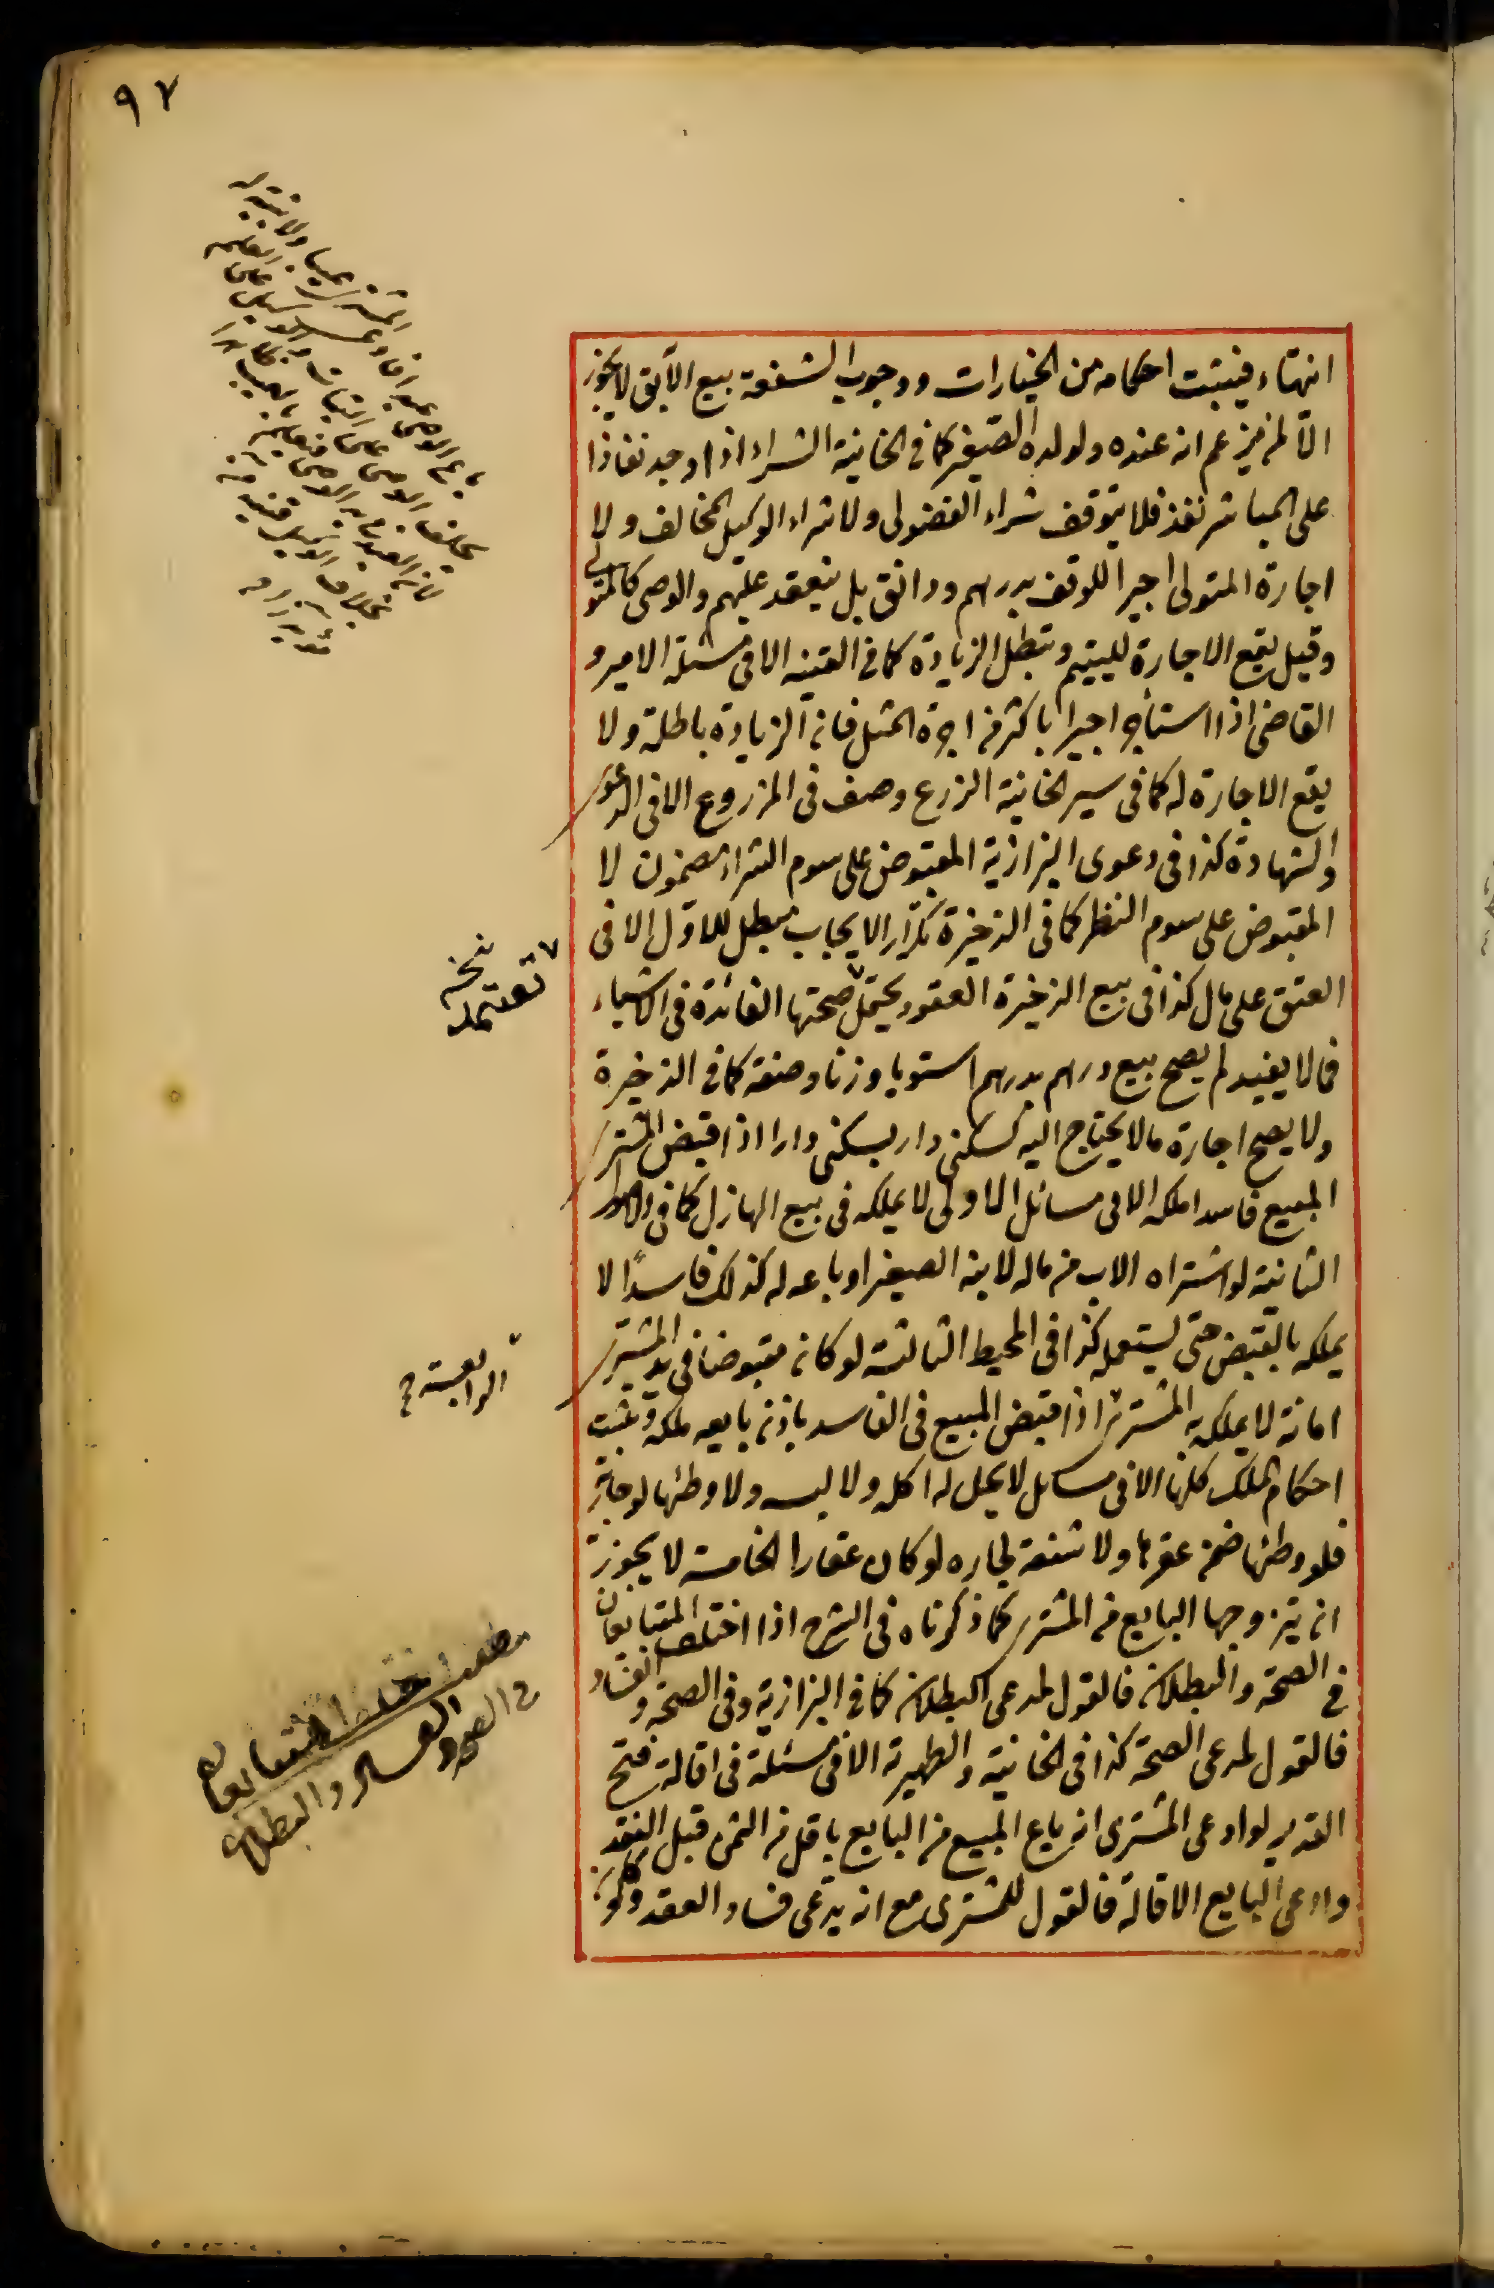 ٩٧
انتهاء فيثبت احكامه من الخيارات ووجوب الشفعة بيع الآبق لا يجوز
الا لمن يزعم انه عنده ولولده الصغير كما فى الخانية الشراء اذا وجد نفاذا
على المباشر نفذ فلا يتوقف شراء الفضولى ولا شراء الوكيل المخالف ولا
اجارة المتولى اجيرا للوقف بدرهم ودانق بل ينعقد عليهم والوصى كالمتولى
وقيل يقع الاجارة لليتيم وتبطل الزيادة كما فى القنية الا فى مسئلة الامير و
القاضى اذا استأجر اجيرا باكثر من اجرة المثل فان الزيادة باطلة ولا
يقع الاجارة له كما فى سير الخانية الزرع وصف فى المزروع الا فى الدعوى
والشهادة كذا فى دعوى البزازية المقبوض على سوم الشراء مضمون لا
المقبوض على سوم النظر كما فى الذخيرة تكرار الايجاب مبطل للاول الا فى
العتق على مال كذا فى بيع الذخيرة العقود يحتمل صحتها الفائدة فى الاشياء
فما لا يفيد لم يصح بيع درهم بدرهم استويا وزنا وصفة كما فى الذخيرة
ولا يصح اجارة ما لا يحتاج اليه كسكنى دار بسكنى دارا اذا قبض المشترى
المبيع فاسدا ملكه الا فى مسائل الاولى لا يملكه فى بيع الهازل كما فى الاصول
الثانية لو اشتراه الاب من ماله لابنه الصغير او باعه له كذلك فاسدًا لا
يملكه بالقبض حتى يستعمله كذا فى المحيط الثالثة لو كان مقبوضا فى يد المشترى
امانة لا يملكه به المشترى اذا قبض المبيع فى الفاسد باذن بايعه ملكه وتثبت
احكام الملك كلها الا فى مسائل لا يحل له اكله ولا لبسه ولا وطئها لو جارية
فلو وطئها ضمن عقرها ولا شفعة لجاره لو كان عقارا الخامسة لا يجوز
ان يتزوجها البايع من المشترى كما ذكرناه فى الشرح اذا اختلف المتبايعان
فى الصحة والبطلان فالقول لمدعى البطلان كما فى البزازية وفى الصحة والفساد
فالقول لمدعى الصحة كذا فى الخانية والظهيرية الا فى مسئلة فى اقالة فتح
القدير لو ادعى المشترى انه باع المبيع من البايع باقل من الثمن قبل النقد
وادعى البايع الاقالة فالقول للمشترى مع انه يدعى فساد العقد ولو كان
نسخه
تعتمد
الرابعة ح
اختلف المتبايعان
فى الصحة والفساد والبطلان